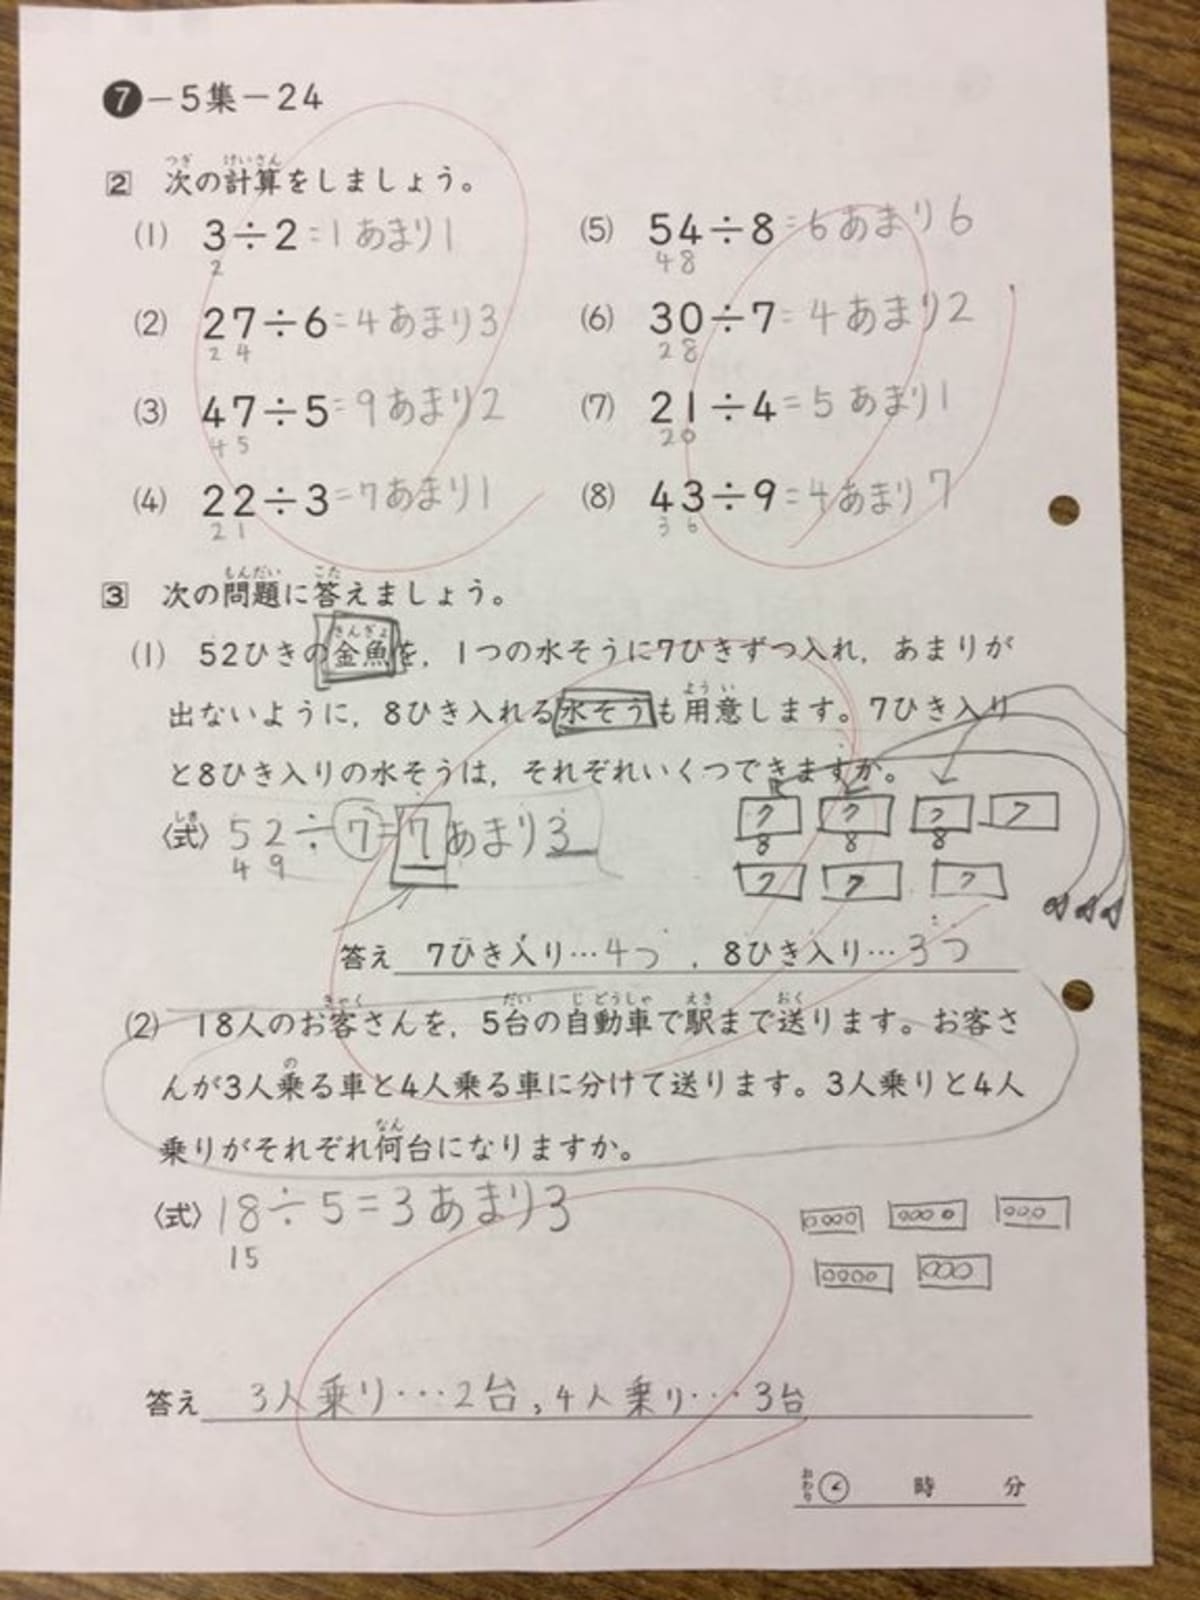 ❼－5集－24
2 次の計算をしましょう。
つぎ けいさん
(1) 3÷2=1あまり1
2
(2) 27÷6=4あまり3
24
(3) 47÷5=9あまり2
45
(4) 22÷3=7あまり1
21
(5) 54÷8=6あまり6
48
(6) 30÷7=4あまり2
28
(7) 21÷4=5あまり1
20
(8) 43÷9=4あまり7
36
3 次の問題に答えましょう。
もんだい こた
(1) 52ひきの金魚を，1つの水そうに7ひきずつ入れ，あまりが
きんぎょ
出ないように，8ひき入れる水そうも用意します。7ひき入り
ようい
と8ひき入りの水そうは，それぞれいくつできますか。
〈式〉52÷7=7あまり3
しき
49
7 7 7 7
8 8 8
7 7 7
答え 7ひき入り…4つ，8ひき入り…3つ
(2) 18人のお客さんを，5台の自動車で駅まで送ります。お客さ
きゃく だい じどうしゃ えき おく
んが3人乗る車と4人乗る車に分けて送ります。3人乗りと4人
の
乗りがそれぞれ何台になりますか。
なん
〈式〉18÷5=3あまり3
15
答え 3人乗り…2台，4人乗り…3台
おわり 時 分